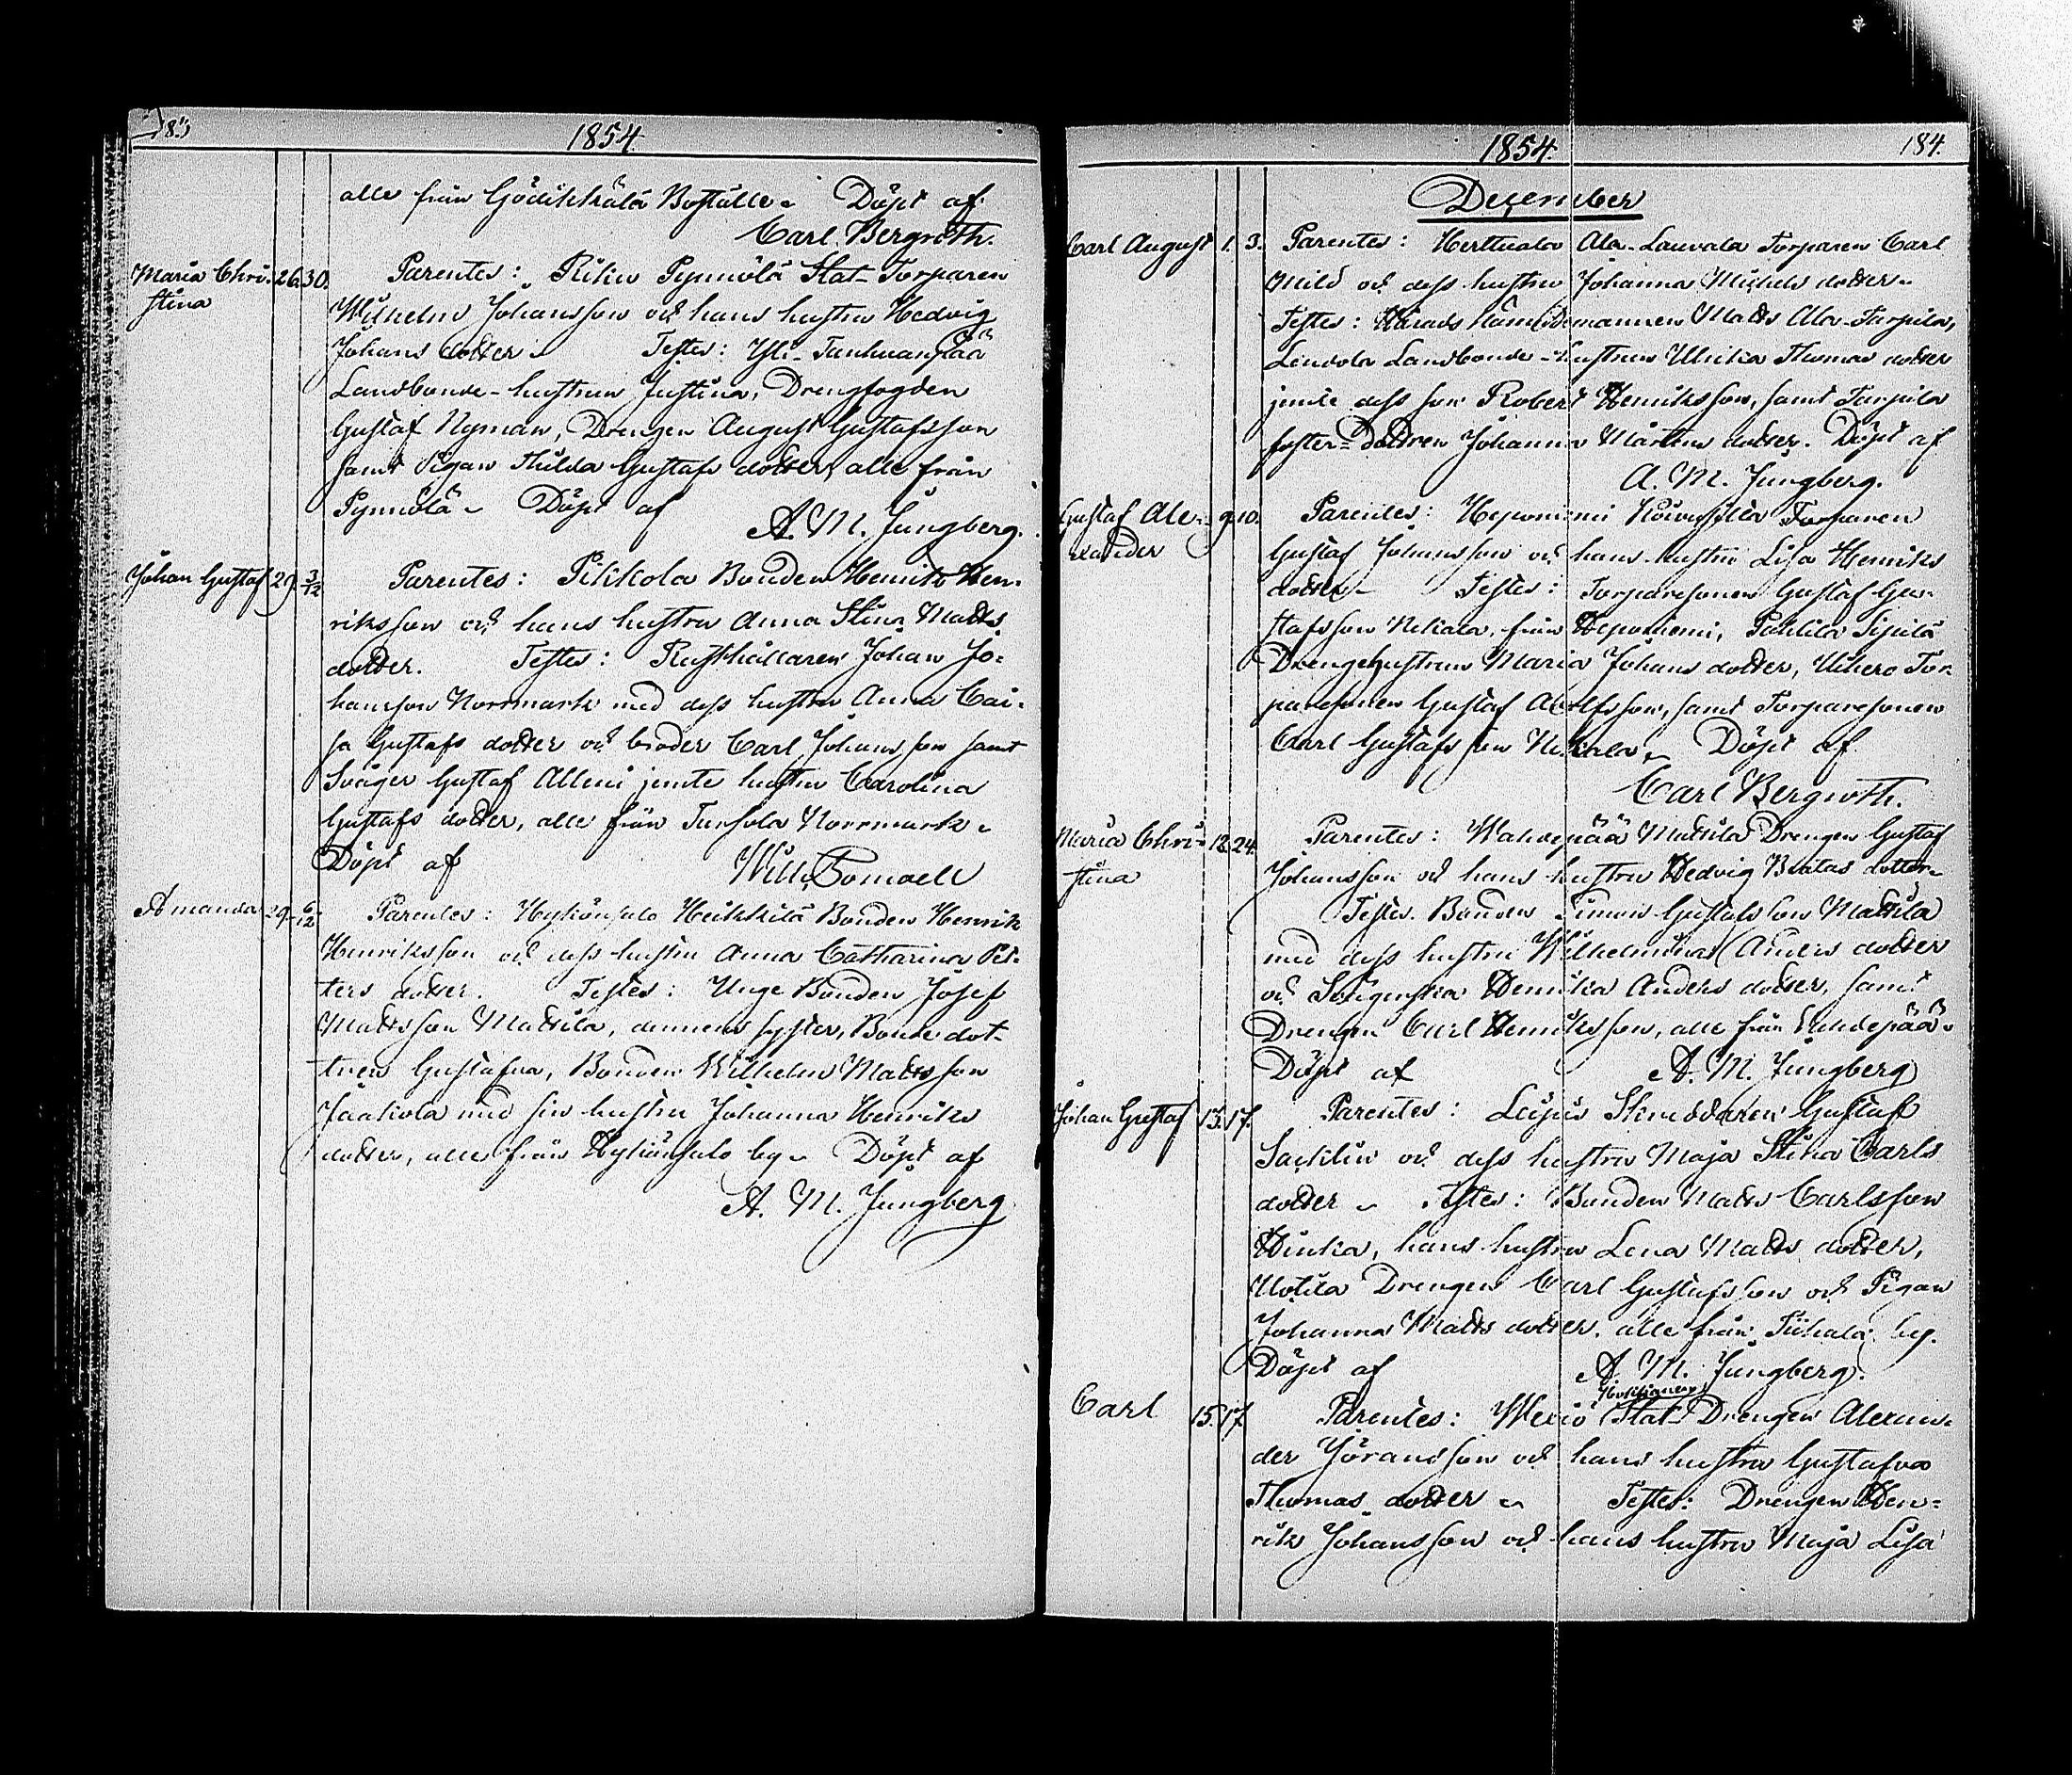 1854
alle från Boställe Döpt af
Carl Bergroth.
Maria Chri- 26. 30. Parentes: Pynnölä Stat-Torparen
stina Wilhelm Johansson och hans hustru Hedvig
Johans dotter Testes: Yli-
Landbonde-hustrun Justina, Drengfogden
Gustaf Nyman, Drengen August Gustafsson
samt Pigan Hilda Gustafs dotter, alle från
Pynnölä Döpt af
A. M. Jungberg.
Johan Gustaf 29. 3/12 Parentes: Pikkola Bonden Henrik Hen-
riksson och hans hustru Anna Stina Matts
dotter. Testes: Rusthållaren Johan Jo-
hansson Norrmark med dess hustru Anna Cai-
sa Gustafs dotter och broder Carl Johansson samt
Svåger Gustaf Alleni jemte hustru Carolina
Gustafs dotter, alle från Norrmark
Döpt af Wilh.
Amanda 29. 6/12 Parentes: Hykönsalo Heikkilä Bonden Henrik
Henriksson och dess hustru Anna Catharina Pet-
ters dotter. Testes: Unge Bonden Josef
Mattsson Mattila, dennens syster, Bonde dot-
tren Gustafva, Bonden Wilhelm Mattsson
Jaakola med sin hustru Johanna Henriks
dotter, alle från Hykönsalo by Döpt af
A. M. Jungberg
1854. 184.
December
Carl August 1. 3. Parentes: Herttuala Ala-Lauvala Torparen Carl
Mild och dess hustru Johanna Michels dotter
Testes: Härads Nämndemannen Matts Ala-Tarpila,
Landbonde-hustrun Ulrika Thomas dotter
jemte dess son Robert Henriksson, samt Tarpila
foster-Dottren Johanna Mårtens dotter. Döpt af
A. M. Jungberg.
Gustaf Ale- 9. 10. Parentes: Heponiemi Torparen
xander Gustaf Johansson och hans hustru Lisa Henriks
dotter Testes: Torparesonen Gustaf Gu-
stafsson Nikala, från Heponiemi, Sipilä
Drengehustrun Maria Johans dotter, Tor-
paresonen Gustaf Adolfsson, samt Torparesonen
Carl Gustafsson Nikala Döpt af
Carl Bergroth.
Maria Chri- 12. 24. Parentes: Wahdepää Mattila Drengen Gustaf
stina Johansson och hans hustru Hedvig Beatas dotter
Testes. Bonden Simon Gustafsson Mattila
med dess hustru Wilhelmina Anders dotter
och Svägerska Henrika Anders dotter, samt
Drengen Carl Henriksson, alle från Vahdepää
Döpt af A. M. Jungberg
Johan Gustaf 13. 17. Parentes: Leijus Skräddaren Gustaf
och dess hustru Maja Stina Carls
dotter Testes: Bonden Matts Carlsson
hans hustru Lena Matts dotter,
Uotila Drengen Carl Gustafsson och Pigan
Johanna Matts dotter, alle från by.
Döpt af A. M. Jungberg.
Carl 15. 17. Parentes: Stat-Drengen Alexan-
der Jöransson och hans hustru Gustafva
Thomas dotter Testes: Drengen Hen-
rik Johansson och hans hustru Maja Lisa